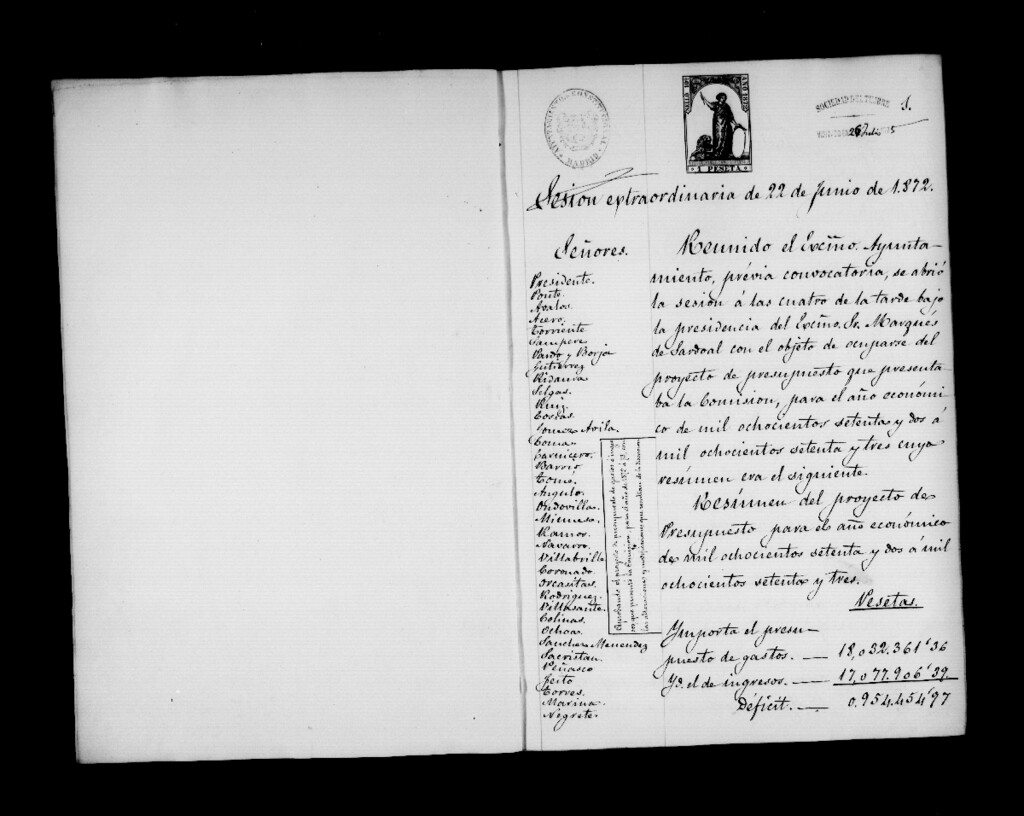 AYUNTAMIENTO CONSTITUCIONAL
MADRID
1 PESETA
SOCIEDAD DEL TIMBRE
26 Julio 75
1.
Sesion extraordinaria de 22 de Junio de 1.872.
Señores.
Presidente.
Ponte.
Avalos.
Acero.
Torriente
Campere
Pardo y Borja
Gutierrez
Ridaura
Selgas.
Ruiz
Gomez Avila.
Carnicero.
Barrio
Tomé.
Angulo.
Ondovilla.
Ramos.
Navarro.
Villabrille
Coronado.
Orcasitas.
Rodriguez.
Villasante.
Colinas.
Ochoa.
Sanchez Menendez
Sacristan.
Peñasco
Feito
Torres.
Marina.
Negrete.
Aprobando el proyecto de presupuesto de gastos é ingre-
sos que presentó la Comision, para el año de 1872 á 73, con
las alteraciones y modificaciones que resultan de la
Reunido el Excmo. Ayunta-
miento, prévia convocatoria, se abrió
la sesion á las cuatro de la tarde bajo
la presidencia del Excmo. Sr. Marqués
de Sardoal con el objeto de ocuparse del
proyecto de presupuesto que presenta-
ba la Comision, para el año económi-
co de mil ochocientos setenta y dos á
mil ochocientos setenta y tres cuyo
resúmen era el siguiente.
Resúmen del proyecto de
Presupuesto para el año económico
de mil ochocientos setenta y dos á mil
ochocientos setenta y tres.
Pesetas.
Ymporta el presu-
puesto de gastos. — 18,032.361'36
Yd. el de ingresos. — 17,077.906'39
Déficit. — 0.954.454'97